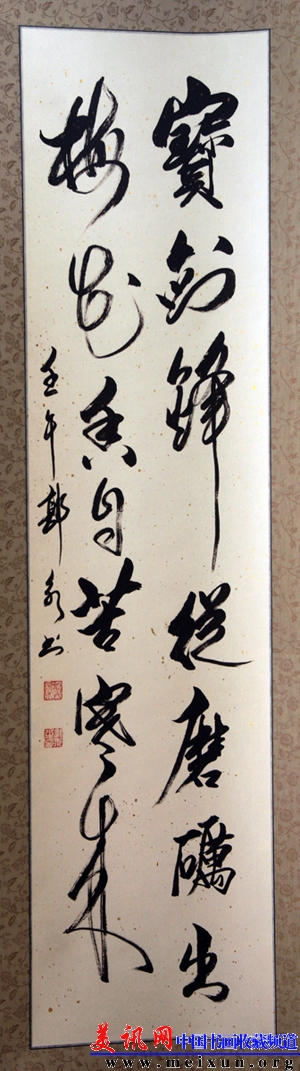 寶劍鋒從磨礪出
梅花香自苦寒來
壬午鄭永书
美讯网 中国书画收藏频道
www.meixun.org